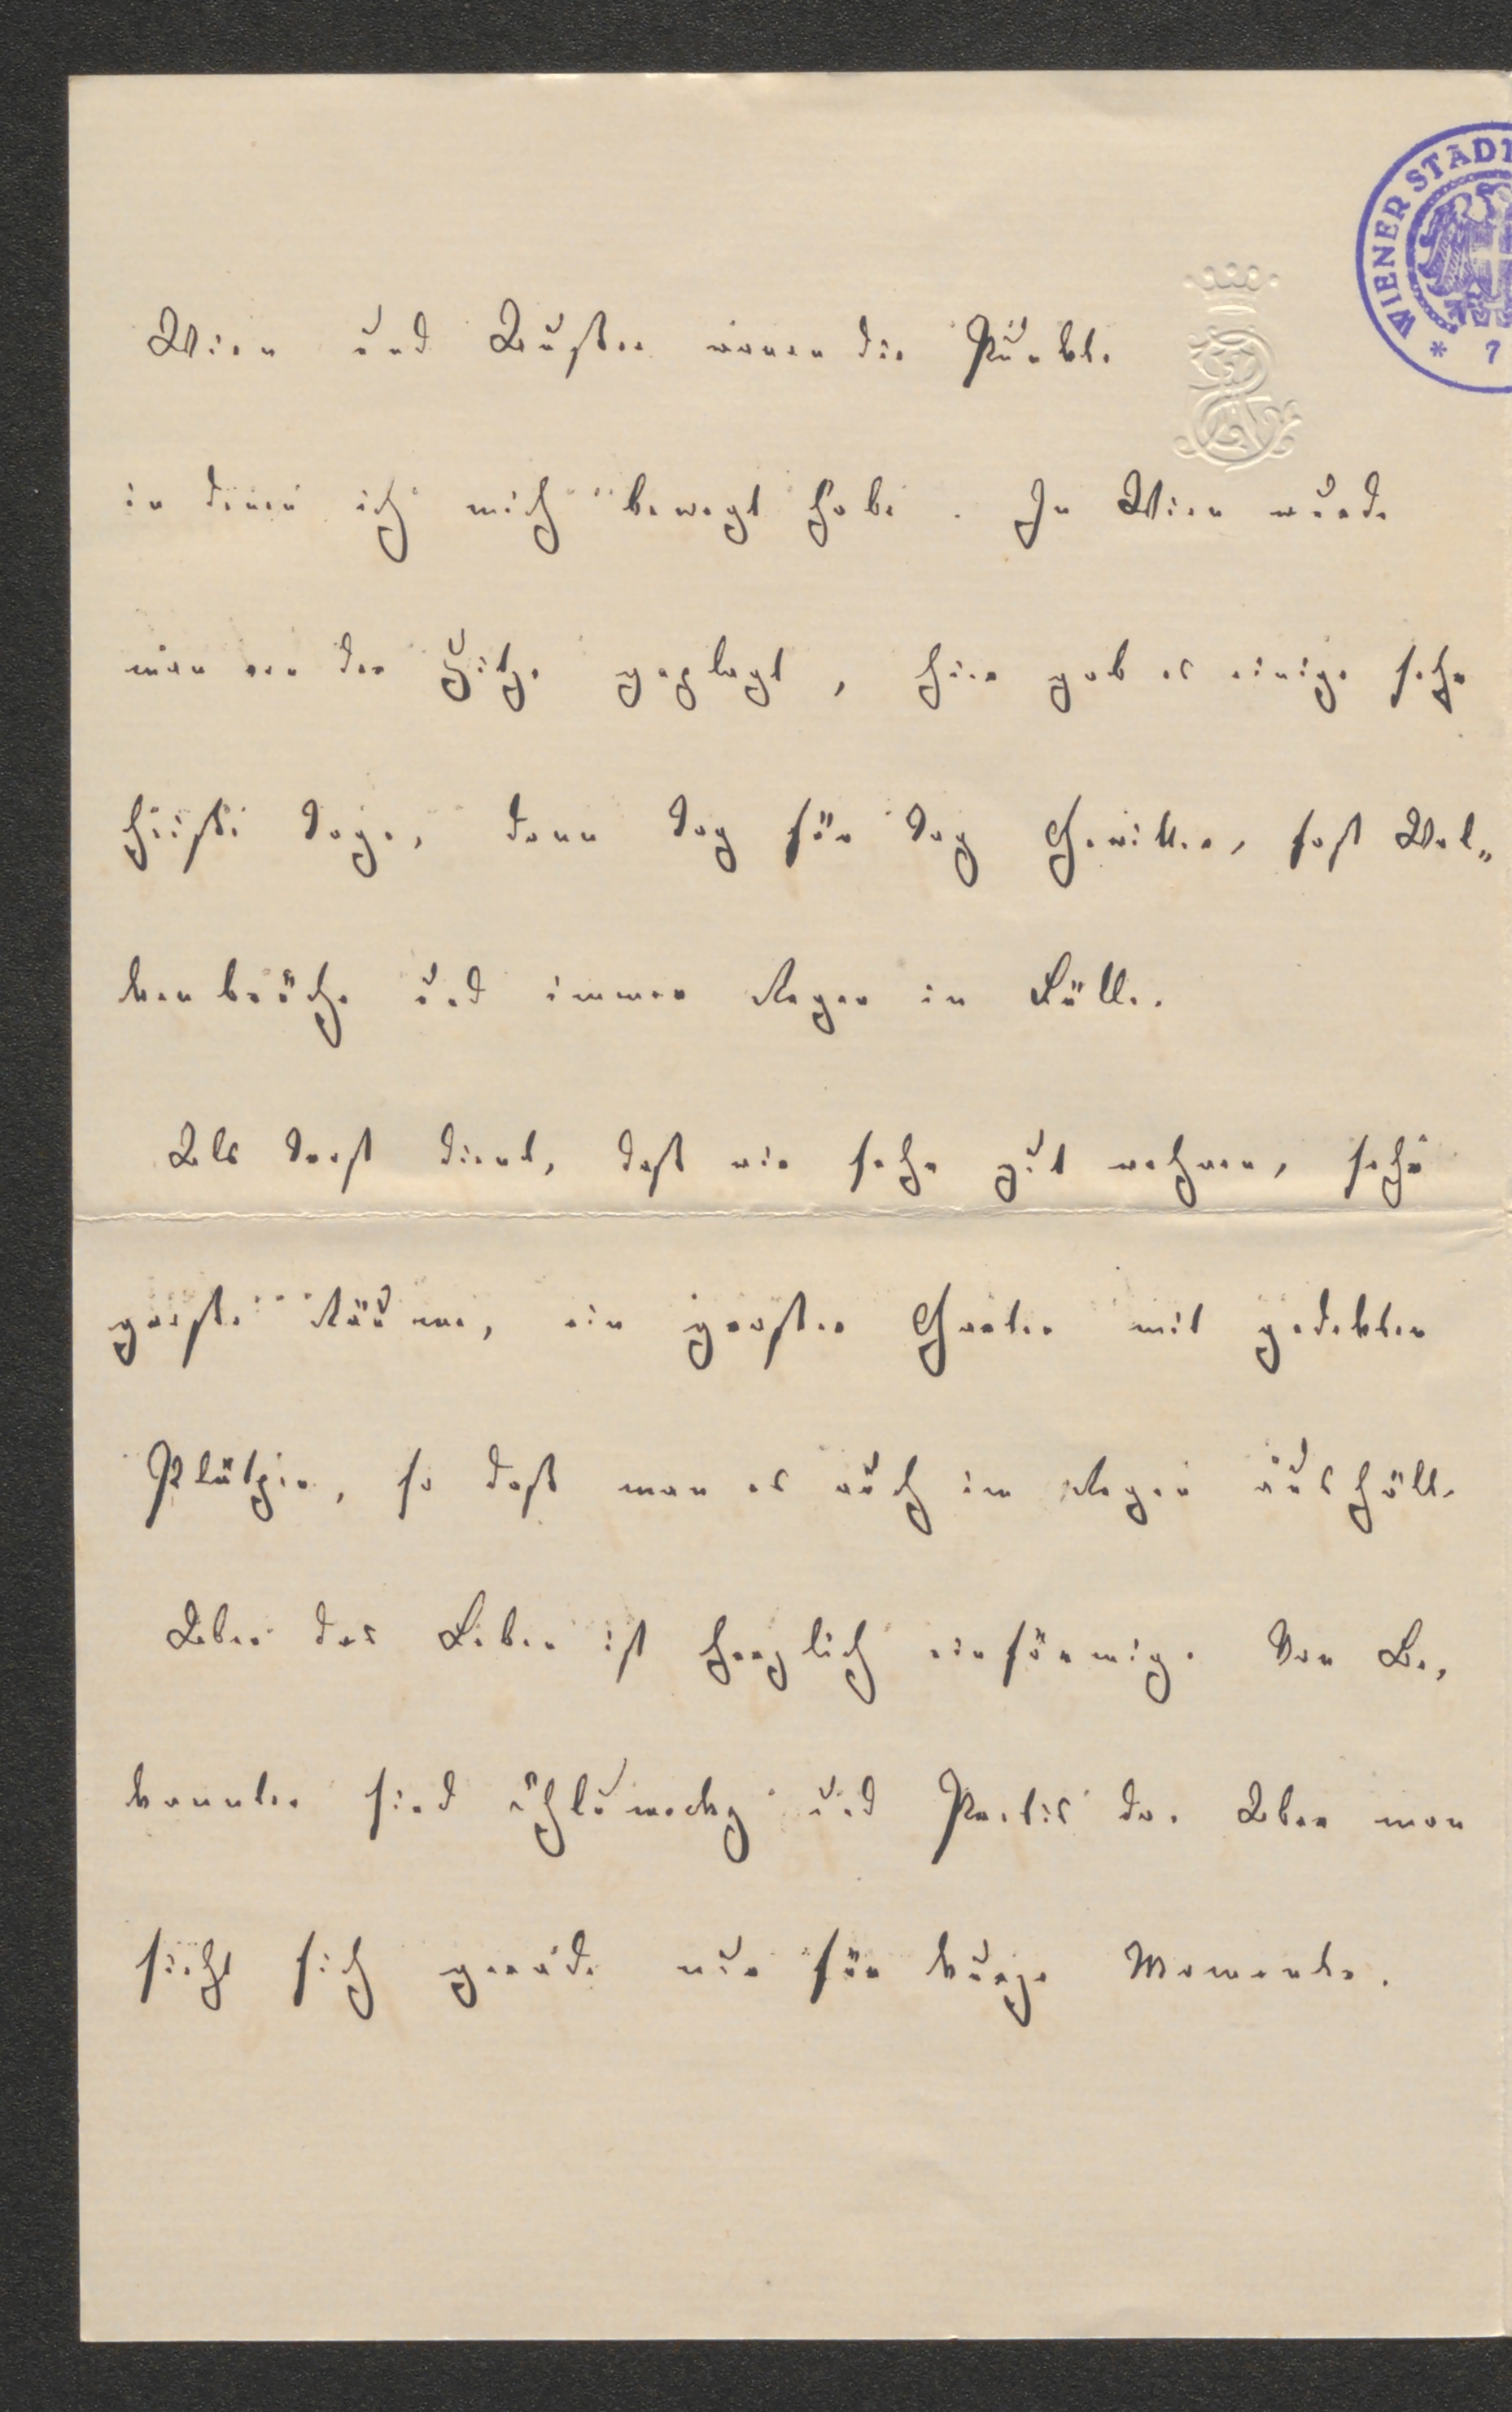 WIENER STADT
* 7
Wien und Aussee waren die Punkte
in denen ich mich bewegt habe. In Wien wurde
man von der Hitze geplagt, hier gab es einige sehr
heiße Tage, dann Tag für Tag Gewitter, fast Wol„
kenbrüche und immer Regen in Fülle.
Als Trost dient, daß wir sehr gut wohnen, sehr
große Räume, ein großer Garten mit gedekten
Plätzen, so daß man es auch im Regen aushält.
Aber das Leben ist herzlich einförmig. Von Be„
kannten sind Chlumecky und da. Aber man
sieht sich gerade nur für kurze Momente.